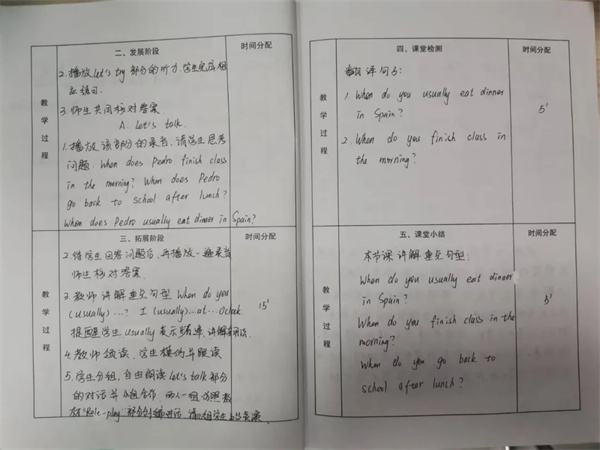 二、发展阶段
时间分配
教学过程
2.播放let's try部分的听力,学生完成相
应练习.
3.师生共同核对答案
A. Let's talk.
1.播放该部分的录音,请学生思考
问题. When does Pedro finish class
in the morning? When does Pedro
go back to school after lunch?
When does Pedro usually eat dinner in Spain?
三、拓展阶段
时间分配
教学过程
2.待学生回答问题后,再播放一遍录音
师生核对答案.
3.教师讲解重点句型 When do you
(usually)...? I (usually)...at...O'clock
提醒学生usually表示频率,讲解
15'
4.教师领读,学生模仿并跟读
5.学生分组,自由朗读let's talk部分
的对话并小组合作,两人一组
"Role-play"
四、课堂检测
时间分配
教学过程
翻译句子:
1. When do you usually eat dinner
in Spain?
5'
2. When do you finish class in
the morning?
五、课堂小结
时间分配
教学过程
本节课讲解重点句型.
When do you usually eat dinner
in Spain?
5'
When do you finish class in the
morning?
When do you go back to
school after lunch?